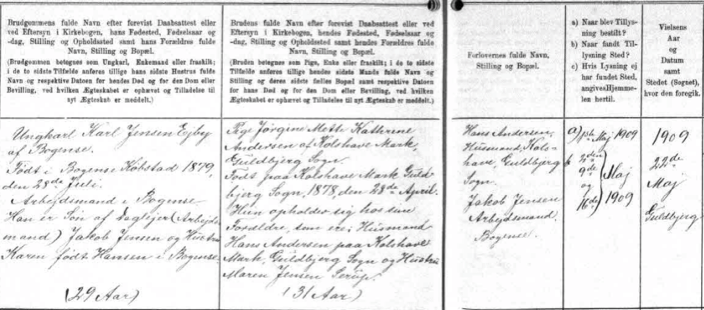 Brudgommens fulde Navn efter forevist Daabsattest eller
ved Eftersyn i Kirkebogen, hans Fødested, Fødselsaar og
-dag, Stilling og Opholdssted samt hans Forældres fulde
Navn, Stilling og Bopæl.
(Brudgommen betegnes som Ungkarl, Enkemand eller fraskilt;
i de to sidste Tilfælde anføres tillige hans Hustrus fulde
Navn og respektive Datoen for hendes Død og for den Dom eller
Bevilling, ved hvilken Ægteskabet er ophævet og Tilladelse til
nyt Ægteskab er meddelt.)
Ungkarl Karl Jensen Ejby
af Bogense.
Født i Bogense Købstad 1879,
den 28de Juli.
Arbejdsmand i Bogense
Han er Søn af Daglejer (Arbejds-
mand) Jakob Jensen og Hustru
Karen født Hansen i Bogense.
(29 Aar)
Brudens fulde Navn efter forevist Daabsattest eller ved
Eftersyn i Kirkebogen, hendes Fødested, Fødselsaar og
-dag, Stilling og Opholdssted samt hendes Forældres fulde
Navn, Stilling og Bopæl.
(Bruden betegnes som Pige, Enke eller fraskilt; i de to sidste
Tilfælde anføres tillige hendes Mands fulde Navn og
Stilling og deres sidste fælles Bopæl samt respektive Datoen
for hans Død og for den Dom eller Bevilling, ved hvilken
Ægteskabet er ophævet og Tilladelse til nyt Ægteskab er meddelt.)
Pige Jørgine Mette Kathrine
Andersen af Kolshave Mark,
Guldbjerg Sogn.
Født paa Kolshave Mark Guld-
bjerg Sogn, 1878, den 28de April.
Hun opholder sig hos sine
Forældre, som ere: Husmand
Hans Andersen paa Kolshave
Mark, Guldbjerg Sogn og Hustru
Maren Jensen
(31 Aar)
Forlovernes fulde Navn,
Stilling og Bopæl.
Hans Andersen,
Husmand, Kols-
have, Guldbjerg
Sogn.
Jakob Jensen
Arbejdsmand
Bogense.
a) Naar blev Tillys-
ning bestilt?
b) Naar fandt Til-
lysning Sted?
c) Hvis Lysning ej
har fundet Sted,
angives Hjemme-
len hertil.
a) Maj 1909
b
9de
og Maj
16de 1909
Vielsens
Aar
og
Datum
samt
Stedet (Sognet),
hvor den foregik.
1909
22de
Maj
Guldbjerg